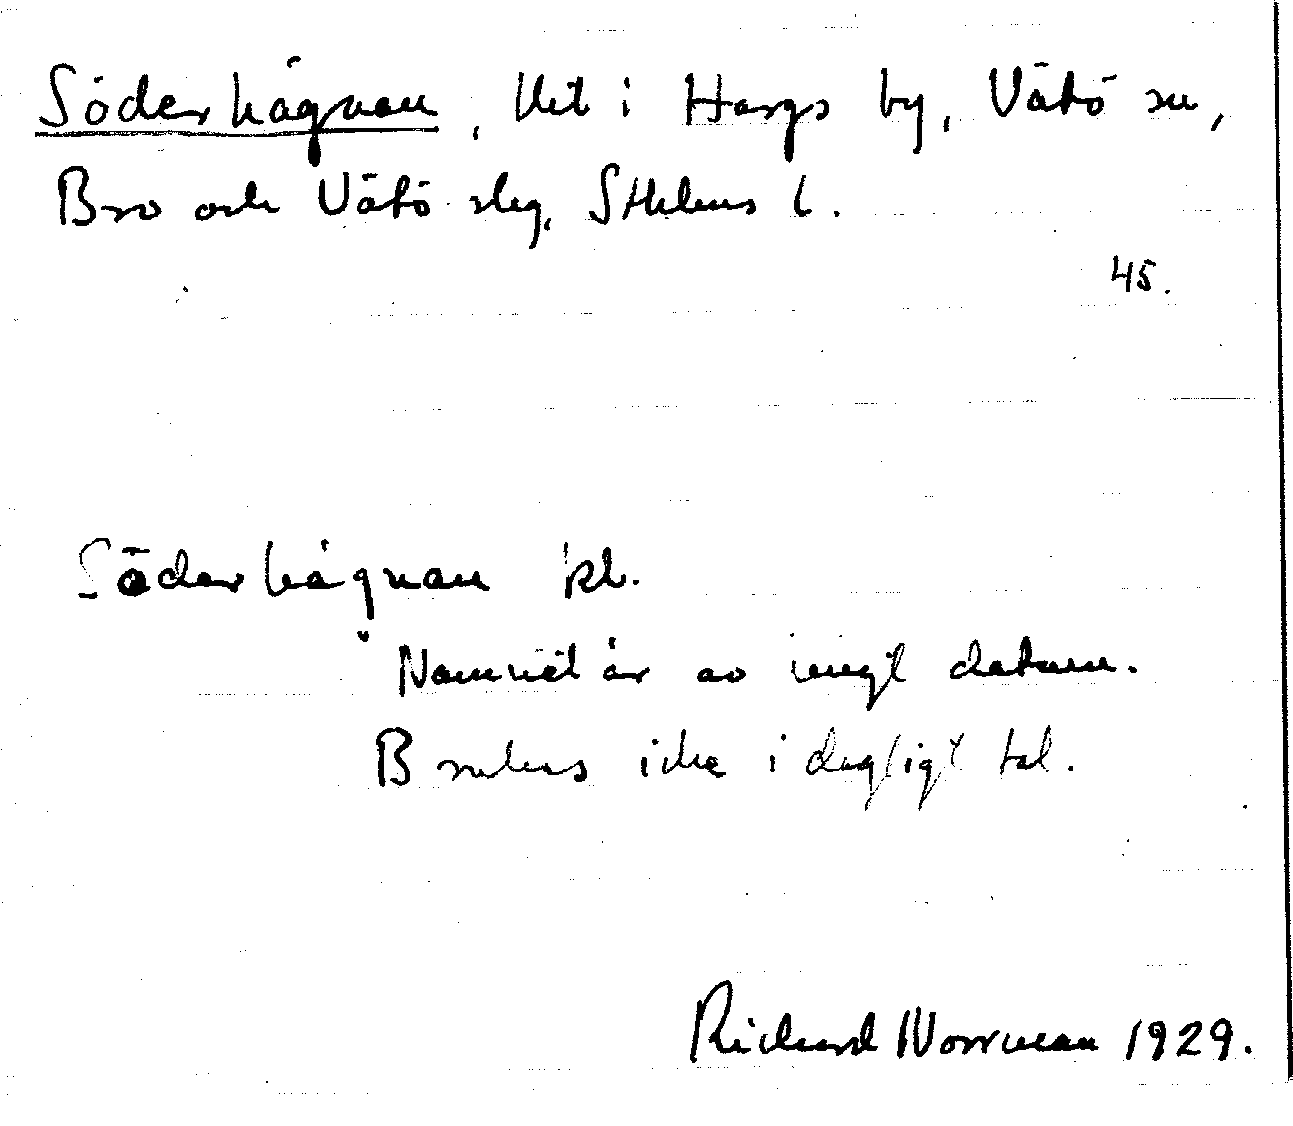 Söderhägnan, lht i Hargs by, Vätö sn,
Bro och Vätö slg, Sthlms l.
45.
Söderhägnan kl.
Namnet är av ungt datum.
Brukas icke i dagligt tal.
Richard Norrman 1929.